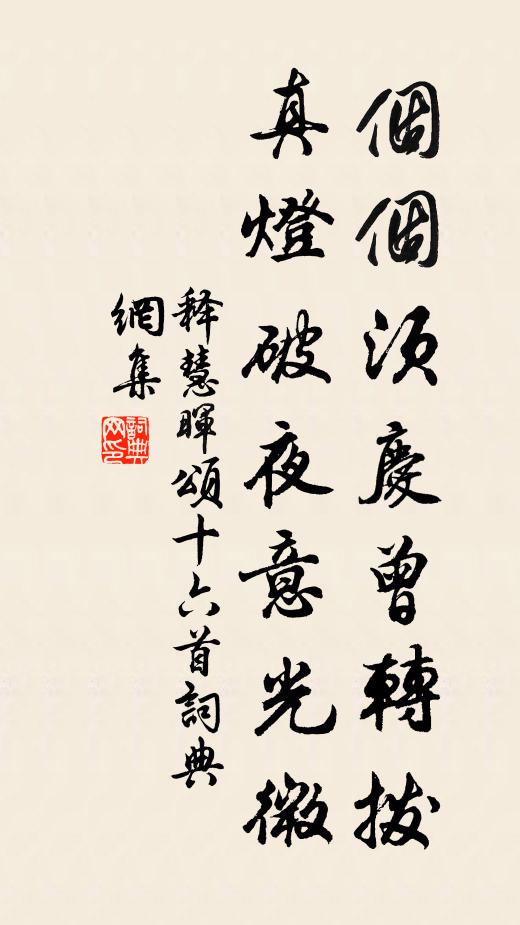 個個須慶曾轉撥
真燈破夜意光微
释慧暉頌十六首詞典
網集
詞典网印